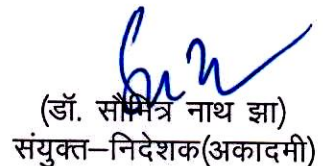 (डॉ. सौमित्र नाथ झा)
संयुक्त–निदेशक(अकादमी)